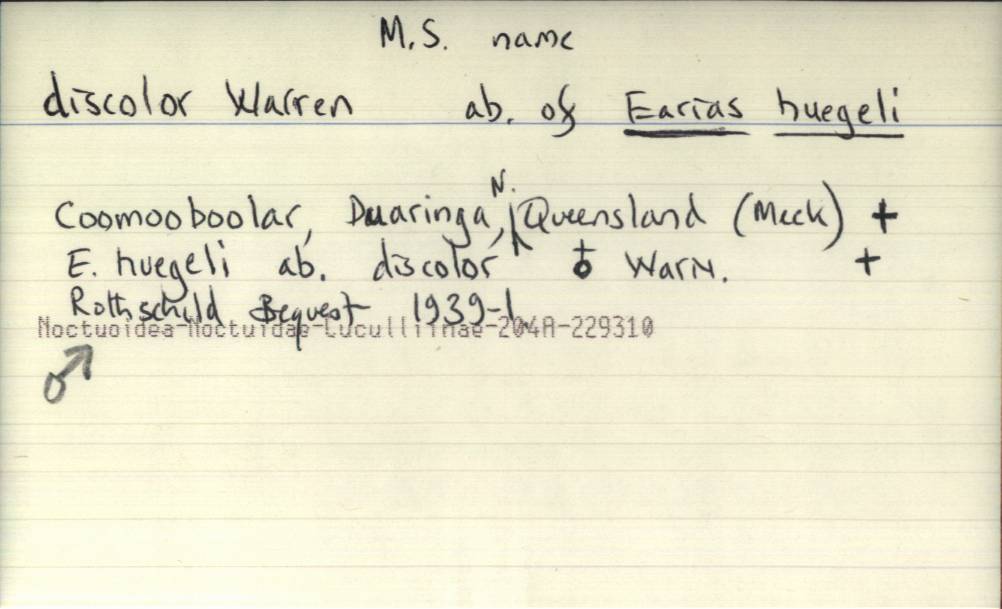 M.S. name
discolor Warren ab. of Earias huegeli
Coomooboolar, Duaringa, N. Queensland (Meek) +
E. huegeli ab. discolor ♁ Warn. +
Rothschild Bequest 1939-1
Noctuoidea-Noctuidae-Cuculliinae-204A-229310
♂